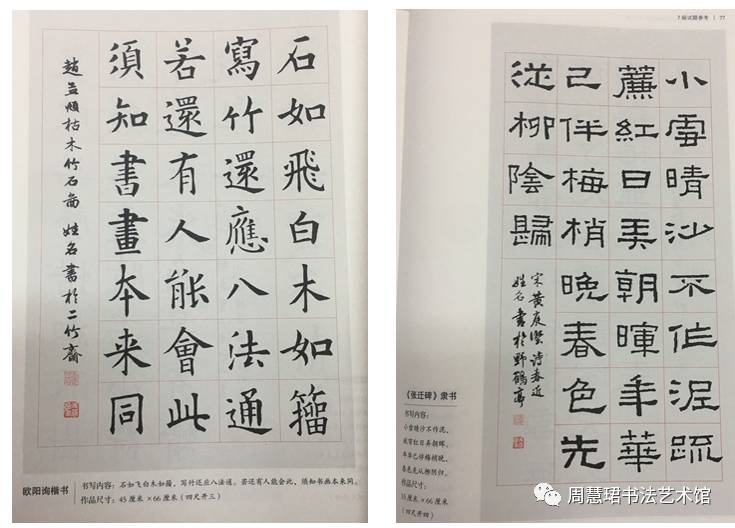 石如飛白木如籀
寫竹還應八法通
若還有人能會此
須知書畫本来同
趙孟頫枯木竹石畵 姓名書於二竹齋
欧阳询楷书
书写内容:石如飞白木如籀,写竹还应八法通。若还有人能会此,须知书画本来同。
作品尺寸:45 厘米 ×66 厘米(四尺开三)
7级试题参考 | 77
小雪晴沙不作泥疏
簾紅日弄朝暉年華
己伴梅梢晚春色先
從柳陰歸
宋黃庭堅詩春近
姓名書於野鶴亭
《张迁碑》隶书
书写内容:
小雪晴沙不作泥,
疏帘红日弄朝晖。
年华已伴梅梢晚,
春色先从柳阴归。
作品尺寸:
35厘米×66厘米
(四尺开四)
周慧珺书法艺术馆